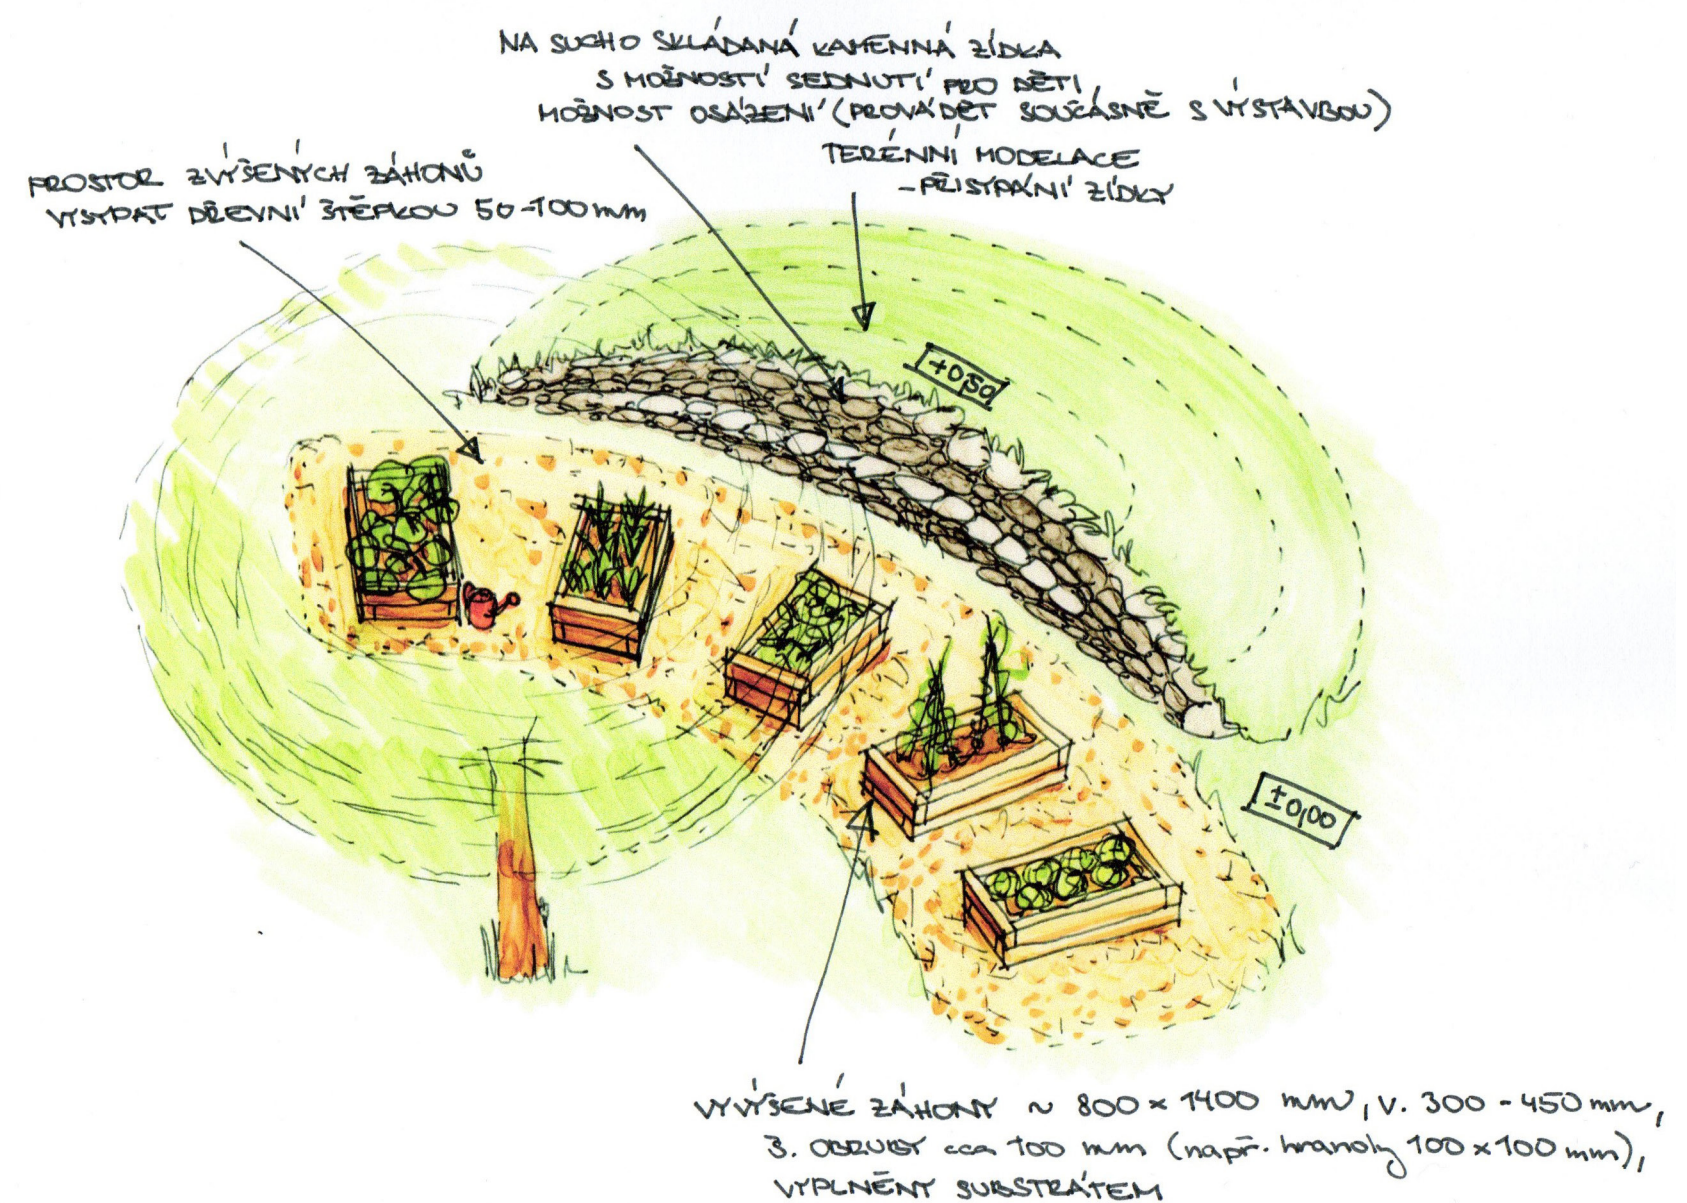 NA SUCHO SKLÁDANÁ KAMENNÁ ZÍDKA
S MOŽNOSTÍ SEDNUTÍ PRO DĚTI,
MOŽNOST OSÁZENÍ (PROVÁDĚT SOUČÁSNĚ S VÝSTAVBOU)
TERÉNNÍ MODELACE
-PŘISYPÁNÍ ZÍDKY
PROSTOR ZVÝŠENÝCH ZÁHONŮ
VYSYPAT DŘEVNÍ ŠTĚPKOU 50-100 mm
+0,50
±0,00
VYVÝŠENÉ ZÁHONY ~ 800 × 1400 mm, v. 300 - 450 mm,
š. OBRUBY cca 100 mm (např. hranoly 100 × 100 mm),
VYPLNĚNY SUBSTRÁTEM